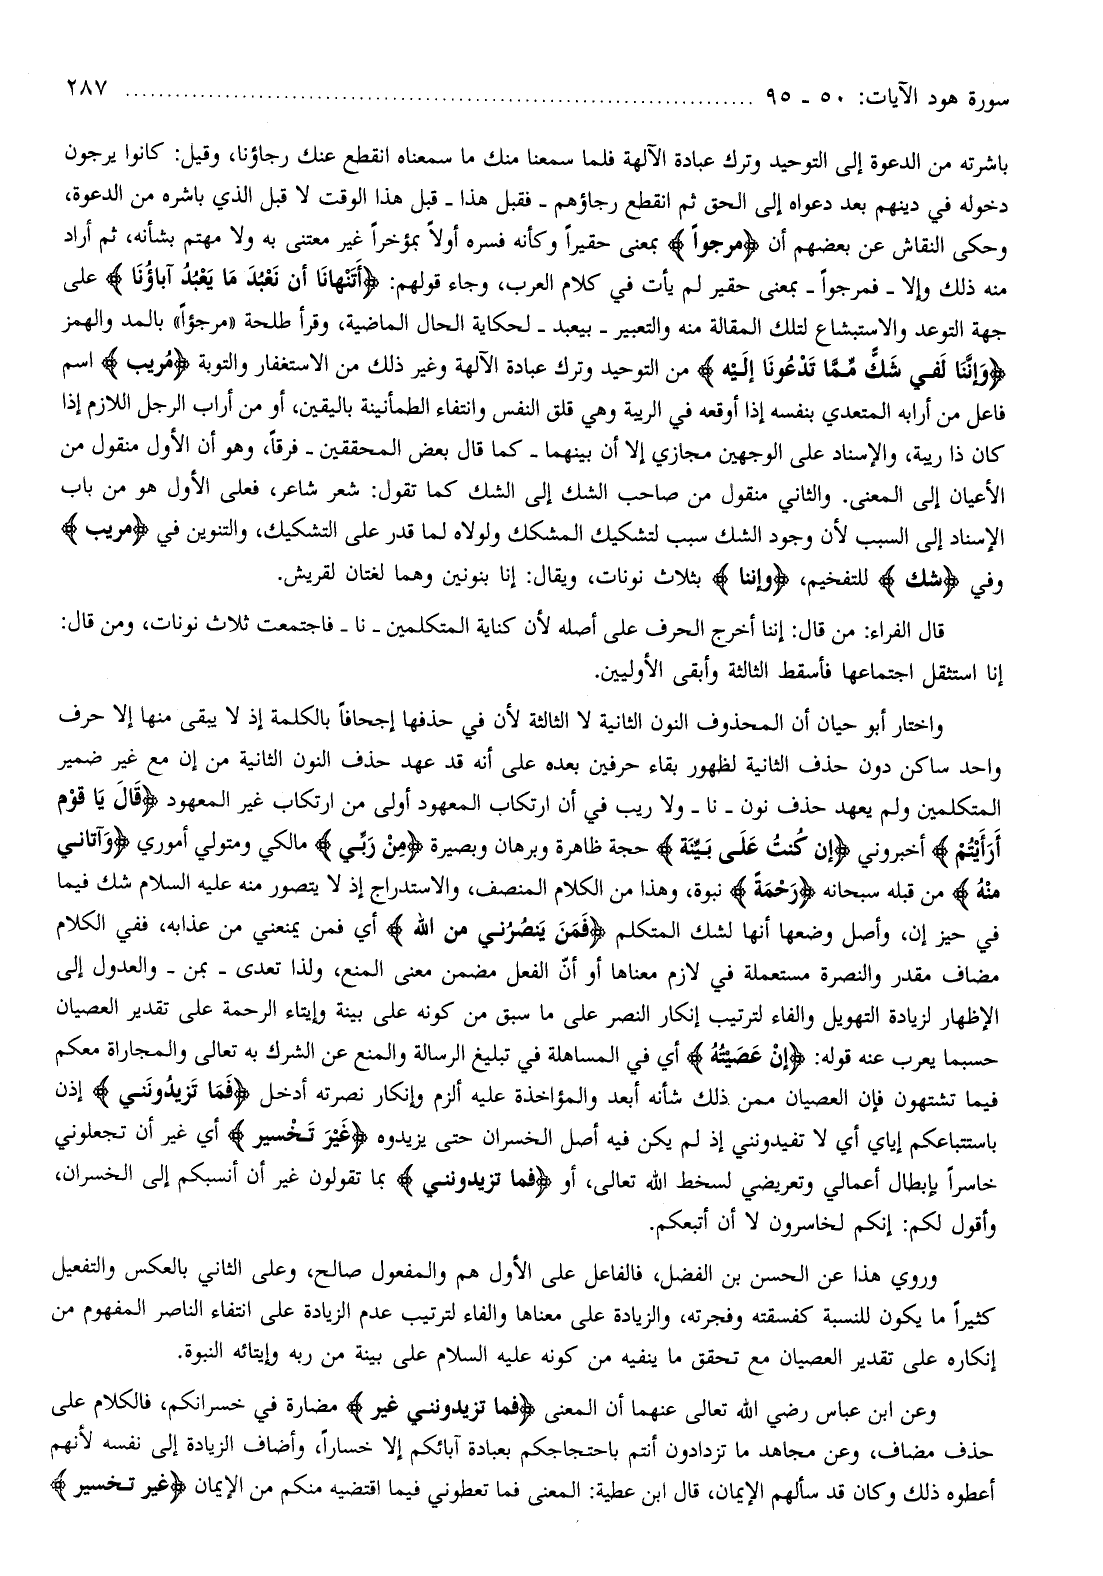 سورة هود الآيات: ٥٠ ـ ٩٥ ........................................................................ ٢٨٧
باشرته من الدعوة إلى التوحيد وترك عبادة الآلهة فلما سمعنا منك ما سمعناه انقطع عنك رجاؤنا، وقيل: كانوا يرجون
دخوله في دينهم بعد دعواه إلى الحق ثم انقطع رجاؤهم ـ فقبل هذا ـ قبل هذا الوقت لا قبل الذي باشره من الدعوة،
وحكى النقاش عن بعضهم أن ﴿مرجواً﴾ بمعنى حقيراً وكأنه فسره أولاً بمؤخراً غير معتنى به ولا مهتم بشأنه، ثم أراد
منه ذلك وإلا ـ فمرجواً ـ بمعنى حقير لم يأت في كلام العرب، وجاء قولهم: ﴿أَتَنْهانَا أن نَعْبُدَ مَا يَعْبُدُ آباؤُنَا﴾ على
جهة التوعد والاستبشاع لتلك المقالة منه والتعبير ـ بيعبد ـ لحكاية الحال الماضية، وقرأ طلحة «مرجؤاً» بالمد والهمز
﴿وَإِنَّنَا لَفي شَكٍّ مِّمَّا تَدْعُونَا إلَيْه﴾ من التوحيد وترك عبادة الآلهة وغير ذلك من الاستغفار والتوبة ﴿مُريب﴾ اسم
فاعل من أرابه المتعدي بنفسه إذا أوقعه في الريبة وهي قلق النفس وانتفاء الطمأنينة باليقين، أو من أراب الرجل اللازم إذا
كان ذا ريبة، والإسناد على الوجهين مجازي إلا أن بينهما ـ كما قال بعض المحققين ـ فرقاً، وهو أن الأول منقول من
الأعيان إلى المعنى. والثاني منقول من صاحب الشك إلى الشك كما تقول: شعر شاعر، فعلى الأول هو من باب
الإسناد إلى السبب لأن وجود الشك سبب لتشكيك المشكك ولولاه لما قدر على التشكيك، والتنوين في ﴿مريب﴾
وفي ﴿شك﴾ للتفخيم، ﴿وإننا﴾ بثلاث نونات، ويقال: إنا بنونين وهما لغتان لقريش.
قال الفراء: من قال: إننا أخرج الحرف على أصله لأن كناية المتكلمين ـ نا ـ فاجتمعت ثلاث نونات، ومن قال:
إنا استثقل اجتماعها فأسقط الثالثة وأبقى الأوليين.
واختار أبو حيان أن المحذوف النون الثانية لا الثالثة لأن في حذفها إجحافاً بالكلمة إذ لا يبقى منها إلا حرف
واحد ساكن دون حذف الثانية لظهور بقاء حرفين بعده على أنه قد عهد حذف النون الثانية من إن مع غير ضمير
المتكلمين ولم يعهد حذف نون ـ نا ـ ولا ريب في أن ارتكاب المعهود أولى من ارتكاب غير المعهود ﴿قَالَ يَا قَوْم
أَرَأَيْتُمْ﴾ أخبروني ﴿إن كُنتُ عَلَى بَيِّنَة﴾ حجة ظاهرة وبرهان وبصيرة ﴿مِنْ رَبِّي﴾ مالكي ومتولي أموري ﴿وَآتاني
منْهُ﴾ من قبله سبحانه ﴿رَحْمَةً﴾ نبوة، وهذا من الكلام المنصف، والاستدراج إذ لا يتصور منه عليه السلام شك فيما
في حيز إن، وأصل وضعها أنها لشك المتكلم ﴿فَمَنَ يَنصُرُني من الله﴾ أي فمن يمنعني من عذابه، ففي الكلام
مضاف مقدر والنصرة مستعملة في لازم معناها أو أنّ الفعل مضمن معنى المنع، ولذا تعدى ـ بمن ـ والعدول إلى
الإظهار لزيادة التهويل والفاء لترتيب إنكار النصر على ما سبق من كونه على بينة وإيتاء الرحمة على تقدير العصيان
حسبما يعرب عنه قوله: ﴿إنْ عَصَيْتُهُ﴾ أي في المساهلة في تبليغ الرسالة والمنع عن الشرك به تعالى والمجاراة معكم
فيما تشتهون فإن العصيان ممن ذلك شأنه أبعد والمؤاخذة عليه ألزم وإنكار نصرته أدخل ﴿فَمَا تَزيدُونَني﴾ إذن
باستتباعكم إياي أي لا تفيدونني إذ لم يكن فيه أصل الخسران حتى يزيدوه ﴿غَيْرَ تَخْسير﴾ أي غير أن تجعلوني
خاسراً بإبطال أعمالي وتعريضي لسخط الله تعالى، أو ﴿فما تزيدونني﴾ بما تقولون غير أن أنسبكم إلى الخسران،
وأقول لكم: إنكم لخاسرون لا أن أتبعكم.
وروي هذا عن الحسن بن الفضل، فالفاعل على الأول هم والمفعول صالح، وعلى الثاني بالعكس والتفعيل
كثيراً ما يكون للنسبة كفسقته وفجرته، والزيادة على معناها والفاء لترتيب عدم الزيادة على انتفاء الناصر المفهوم من
إنكاره على تقدير العصيان مع تحقق ما ينفيه من كونه عليه السلام على بينة من ربه وإيتائه النبوة.
وعن ابن عباس رضي الله تعالى عنهما أن المعنى ﴿فما تزيدونني غير﴾ مضارة في خسرانكم، فالكلام على
حذف مضاف، وعن مجاهد ما تزدادون أنتم باحتجاجكم بعبادة آبائكم إلا خساراً، وأضاف الزيادة إلى نفسه لأنهم
أعطوه ذلك وكان قد سألهم الإيمان، قال ابن عطية: المعنى فما تعطوني فيما اقتضيه منكم من الإيمان ﴿غير تخسير﴾